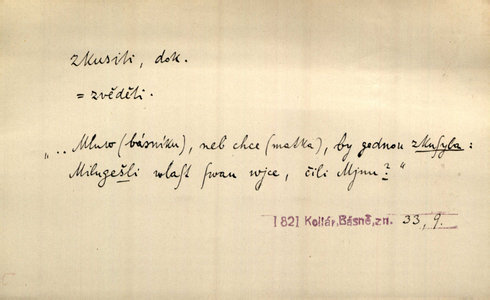 zkusiti, dok.
= zvěděti.
„.. Mluw (básníku), neb chce (matka), by gednou zkuſyla:
Milugešli wlaſt ſwau wjce, čili Mjnu? “
1821 Kollár, Básně, zn. 33, 9.